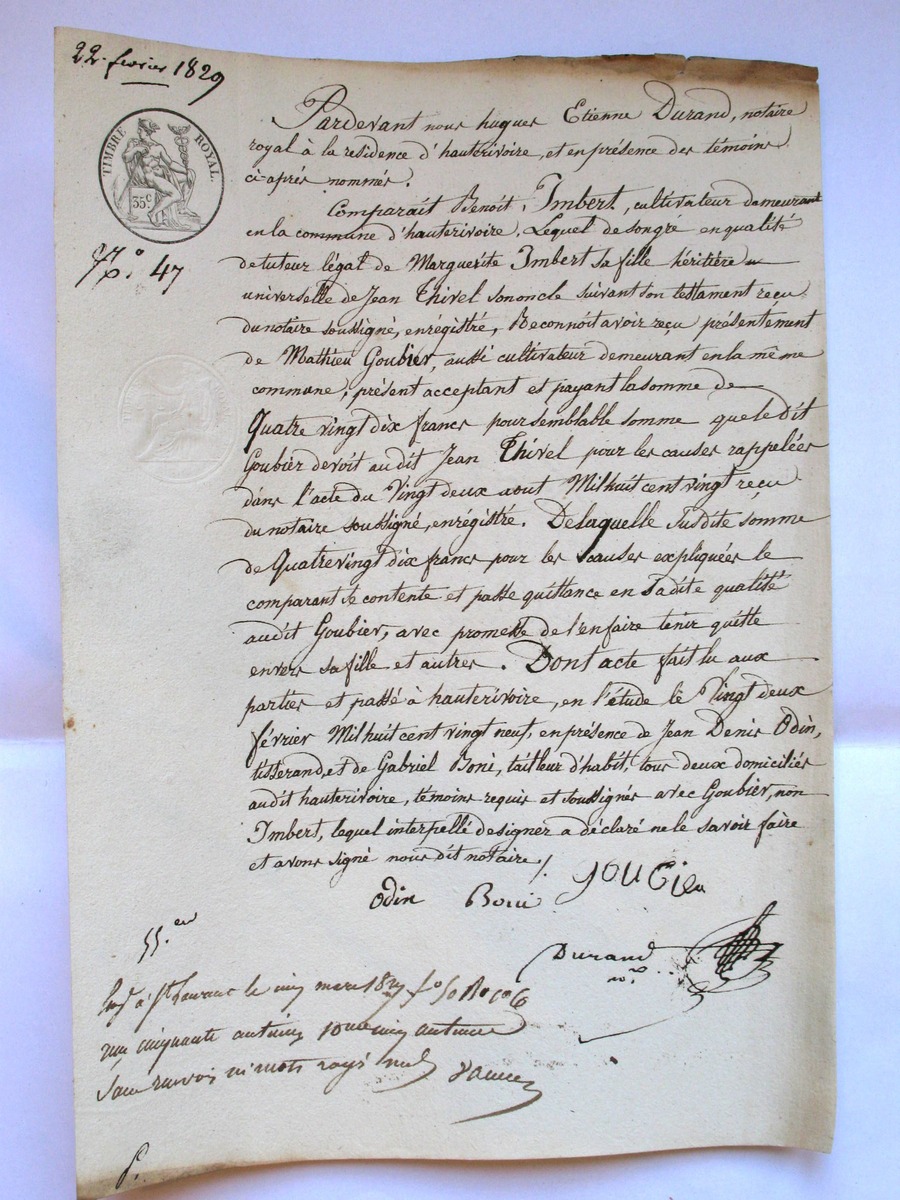 22 fevrier 1829
TIMBRE ROYAL.
35c
No. 47
Pardevant nous hugues Etienne Durand, notaire
royal à la residence d'hauterivoire, et en présence des témoins
ci-après nommés.
Comparait Benoît Imbert, cultivateur demeurant
en la commune d'hauterivoire, Lequel de son gré en qualité
de tuteur légal de Marguerite Imbert sa fille héritière
universelle de Jean Thivel son oncle suivant son testament reçu
du notaire soussigné, enrégistré, Reconnoit avoir reçu présentement
de Mathieu Goubier, aussi cultivateur demeurant en la même
commune, présent acceptant et payant la somme de
Quatre vingt dix francs pour semblable somme que le dit
Goubier devoit au dit Jean Thivel pour les causes rappelées
dans l'acte du Vingt deux aout Mil huit cent vingt reçu
du notaire soussigné, enrégistré. De laquelle susdite somme
de Quatre vingt dix francs pour les causes expliquées le
comparant se contente et passe quittance en sa dite qualité
au dit Goubier, avec promesse de l'en faire tenir quitte
envers sa fille et autres. Dont acte fait lu aux
parties et passé à hauterivoire, en l'étude le Vingt deux
février Mil huit cent vingt neuf, en présence de Jean Denis Odin,
tisserand, et de Gabriel Boni, tailleur d'habit, tous deux domiciliés
au dit hauterivoire, témoins requis et soussignés avec Goubier, non
Imbert, lequel interpellé de signer a déclaré ne le savoir faire
et avons signé nous dit notaire /.
Odin Boni goubier
Durand
nre
à St Laurent le cinq mars 1829 fo 50 Ro co 6
reçu cinquante centimes pour cinq centimes
sans renvois ni mots rayés nuls